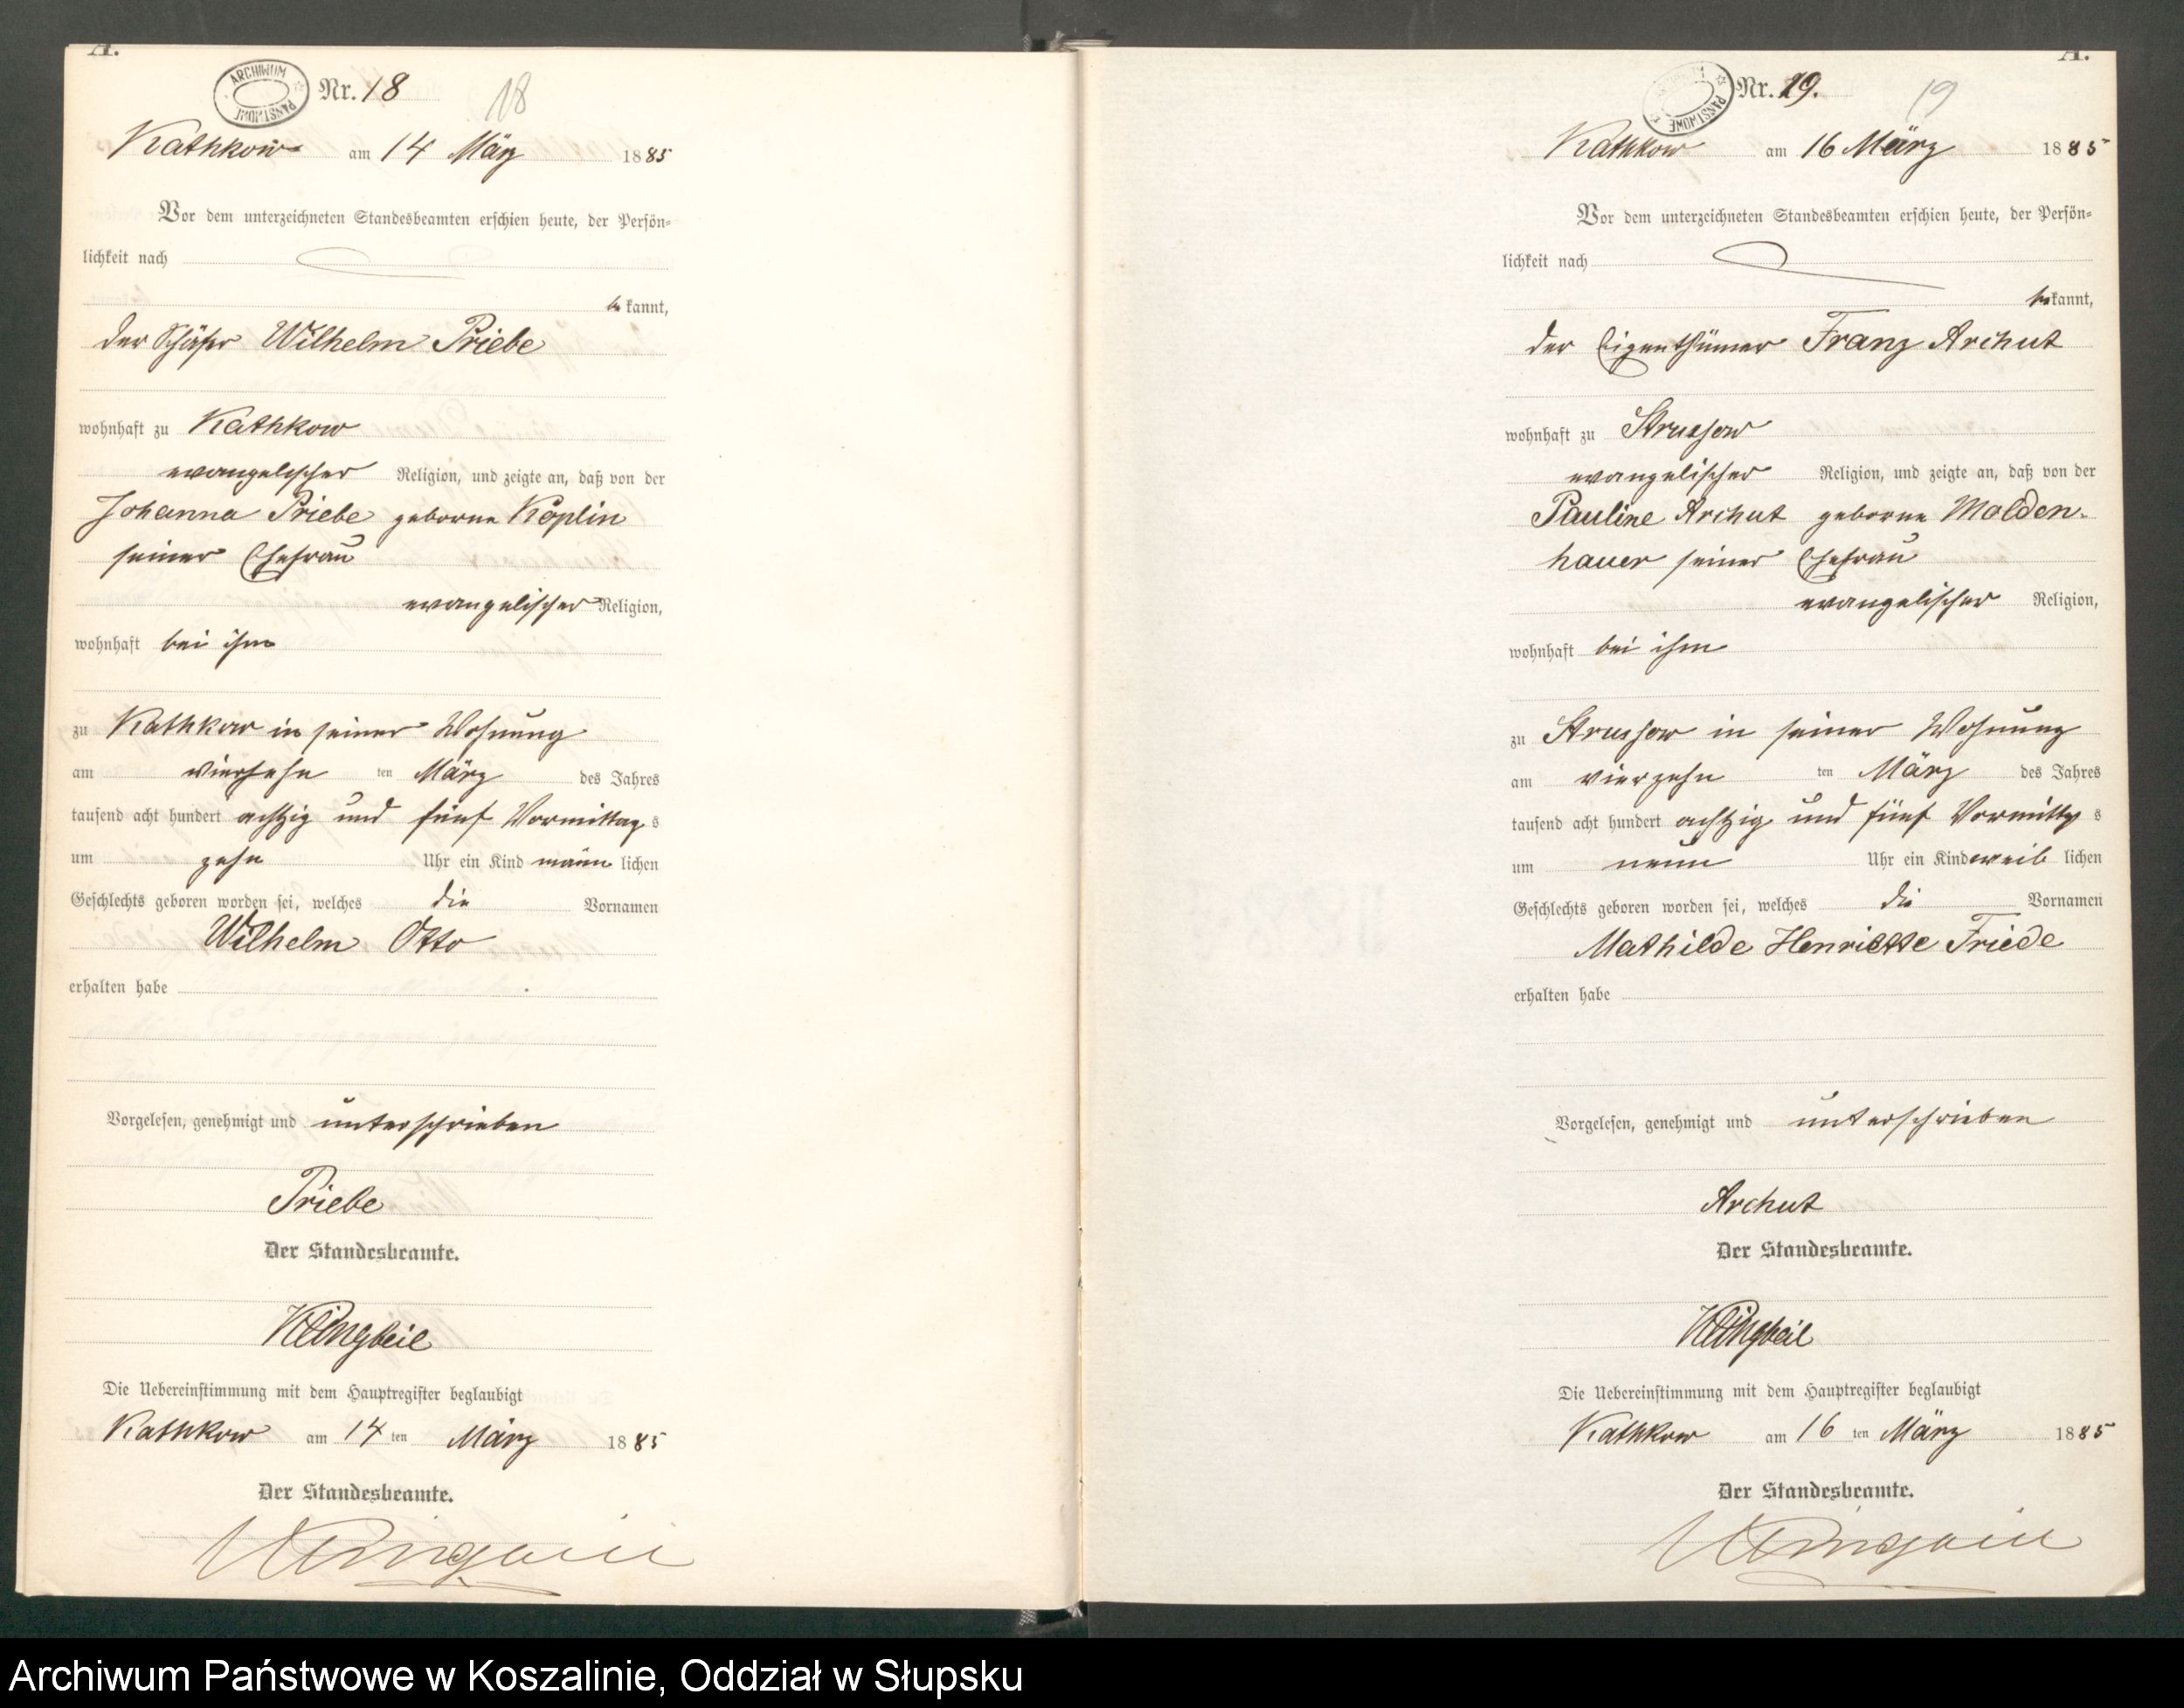 A.
ARCHIWUM PAŃSTWOWE
Nr. 18
18
Kathkow am 14 März 1885
Vor dem unterzeichneten Standesbeamten erschien heute, der Persön-
lichkeit nach
bekannt,
der Schäfer Wilhelm Priebe
wohnhaft zu Kathkow
evangelischer Religion, und zeigte an, daß von der
Johanna Priebe geborne Köplin
seiner Ehefrau
evangelischer Religion,
wohnhaft bei ihm
zu Kathkow in seiner Wohnung
am vierzehn ten März des Jahres
tausend acht hundert achtzig und fünf Vormittags
um zehn Uhr ein Kind männlichen
Geschlechts geboren worden sei, welches die Vornamen
Wilhelm Otto
erhalten habe
Vorgelesen, genehmigt und unterschrieben
Priebe
Der Standesbeamte.
Klingbeil
Die Uebereinstimmung mit dem Hauptregister beglaubigt
Kathkow am 14 ten März 1885
Der Standesbeamte.
Klingbeil
A.
ARCHIWUM PAŃSTWOWE
Nr. 19.
19
Kathkow am 16 März 1885
Vor dem unterzeichneten Standesbeamten erschien heute, der Persön-
lichkeit nach
bekannt,
der Eigenthümer Franz Archut
wohnhaft zu Strussow
evangelischer Religion, und zeigte an, daß von der
Pauline Archut geborne Molden-
hauer seiner Ehefrau
evangelischer Religion,
wohnhaft bei ihm
zu Strussow in seiner Wohnung
am vierzehn ten März des Jahres
tausend acht hundert achtzig und fünf Vormittgs
um neun Uhr ein Kind weiblichen
Geschlechts geboren worden sei, welches die Vornamen
Mathilde Henriette Friede
erhalten habe
Vorgelesen, genehmigt und unterschrieben
Archut
Der Standesbeamte.
Klingbeil
Die Uebereinstimmung mit dem Hauptregister beglaubigt
Kathkow am 16 ten März 1885
Der Standesbeamte.
Klingbeil
Archiwum Państwowe w Koszalinie, Oddział w Słupsku